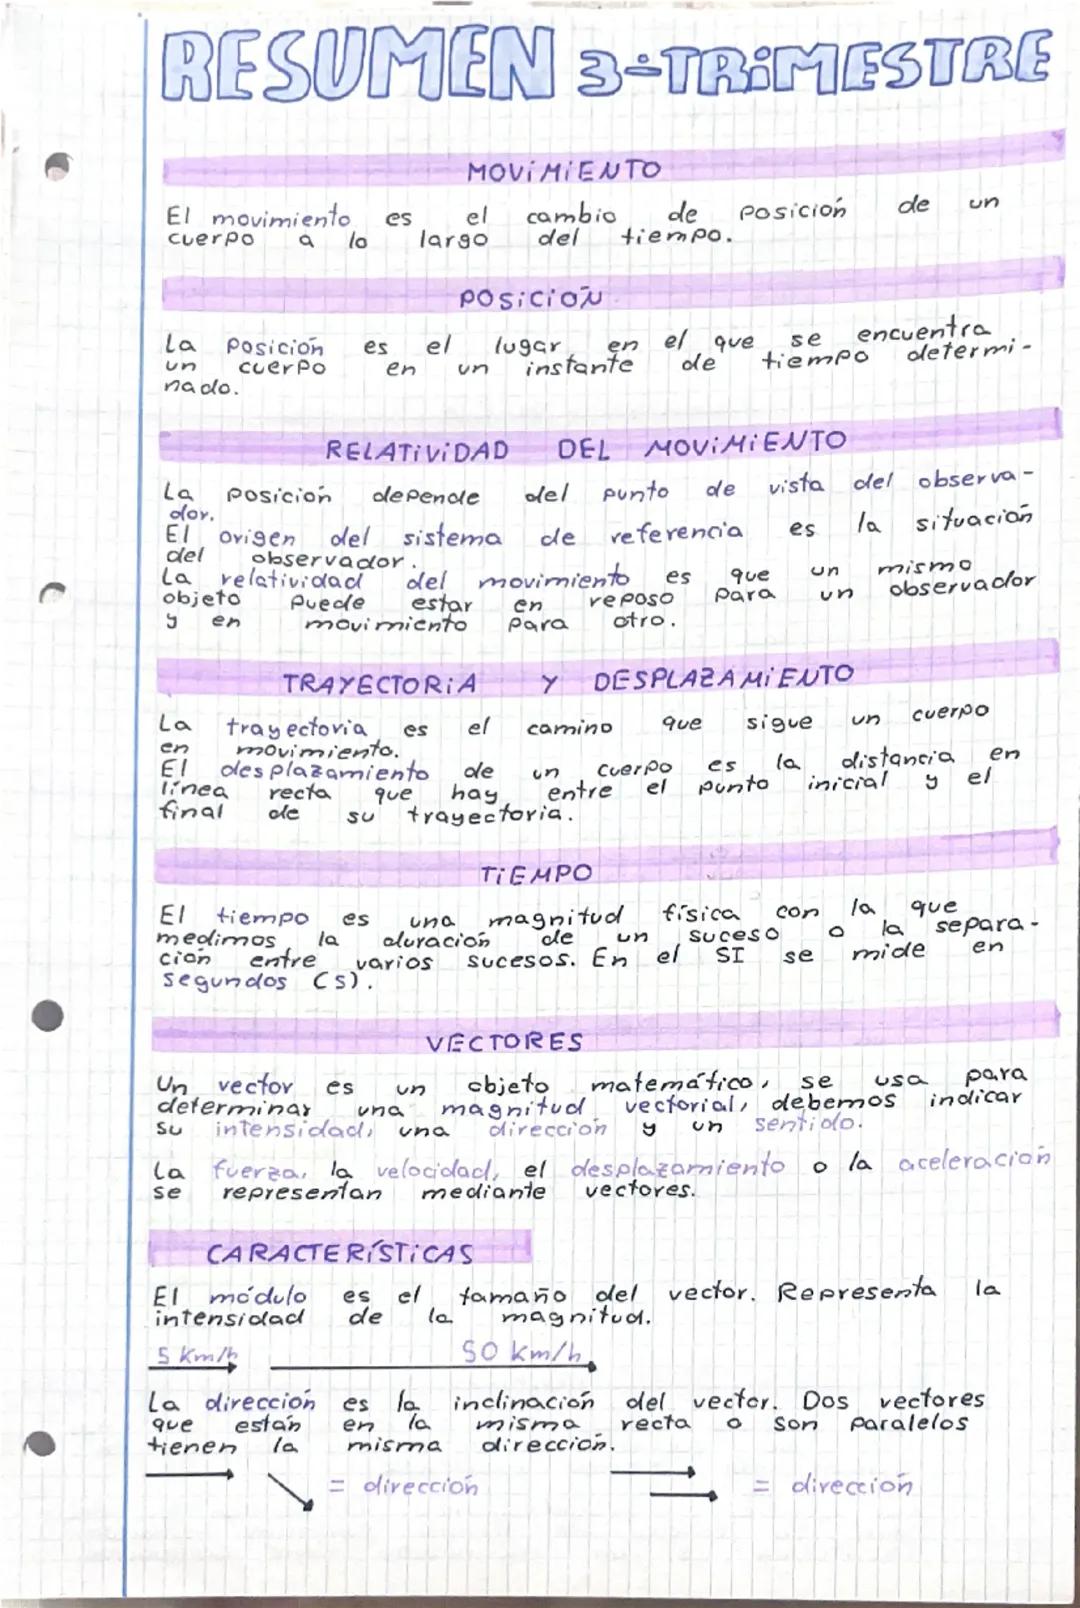 RESUMEN 3º TRiMESTRE
MOViMiENTO
El movimiento es el cambio de posición de un
cuerpo a lo largo del tiempo.
POSiCiÓN
La posición es el lugar en el que se encuentra
un cuerpo en un instante de tiempo determi-
nado.
RELATiViDAD DEL MOViMiENTO
La posición depende del punto de vista del observa-
dor.
El origen del sistema de referencia es la situación
del observador.
La relatividad del movimiento es que un mismo
objeto puede estar en reposo para un observador
y en movimiento para otro.
TRAYECTORiA Y DESPLAZAMiENTO
La trayectoria es el camino que sigue un cuerpo
en movimiento.
El desplazamiento de un cuerpo es la distancia en
línea recta que hay entre el punto inicial y el
final de su trayectoria.
TiEMPO
El tiempo es una magnitud física con la que
medimos la duración de un suceso o la separa-
ción entre varios sucesos. En el SI se mide en
segundos (s).
VECTORES
Un vector es un objeto matemático, se usa para
determinar una magnitud vectorial, debemos indicar
su intensidad, una dirección y un sentido.
La fuerza, la velocidad, el desplazamiento o la aceleración
se representan mediante vectores.
CARACTERÍSTiCAS
El módulo es el tamaño del vector. Representa la
intensidad de la magnitud.
5 km/h 50 km/h
La dirección es la inclinación del vector. Dos vectores
que están en la misma recta o son paralelos
tienen la misma dirección.
= dirección = dirección